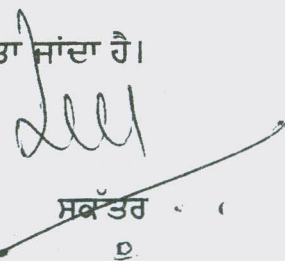 ਜਾਂਦਾ ਹੈ।
ਸਕੱਤਰ